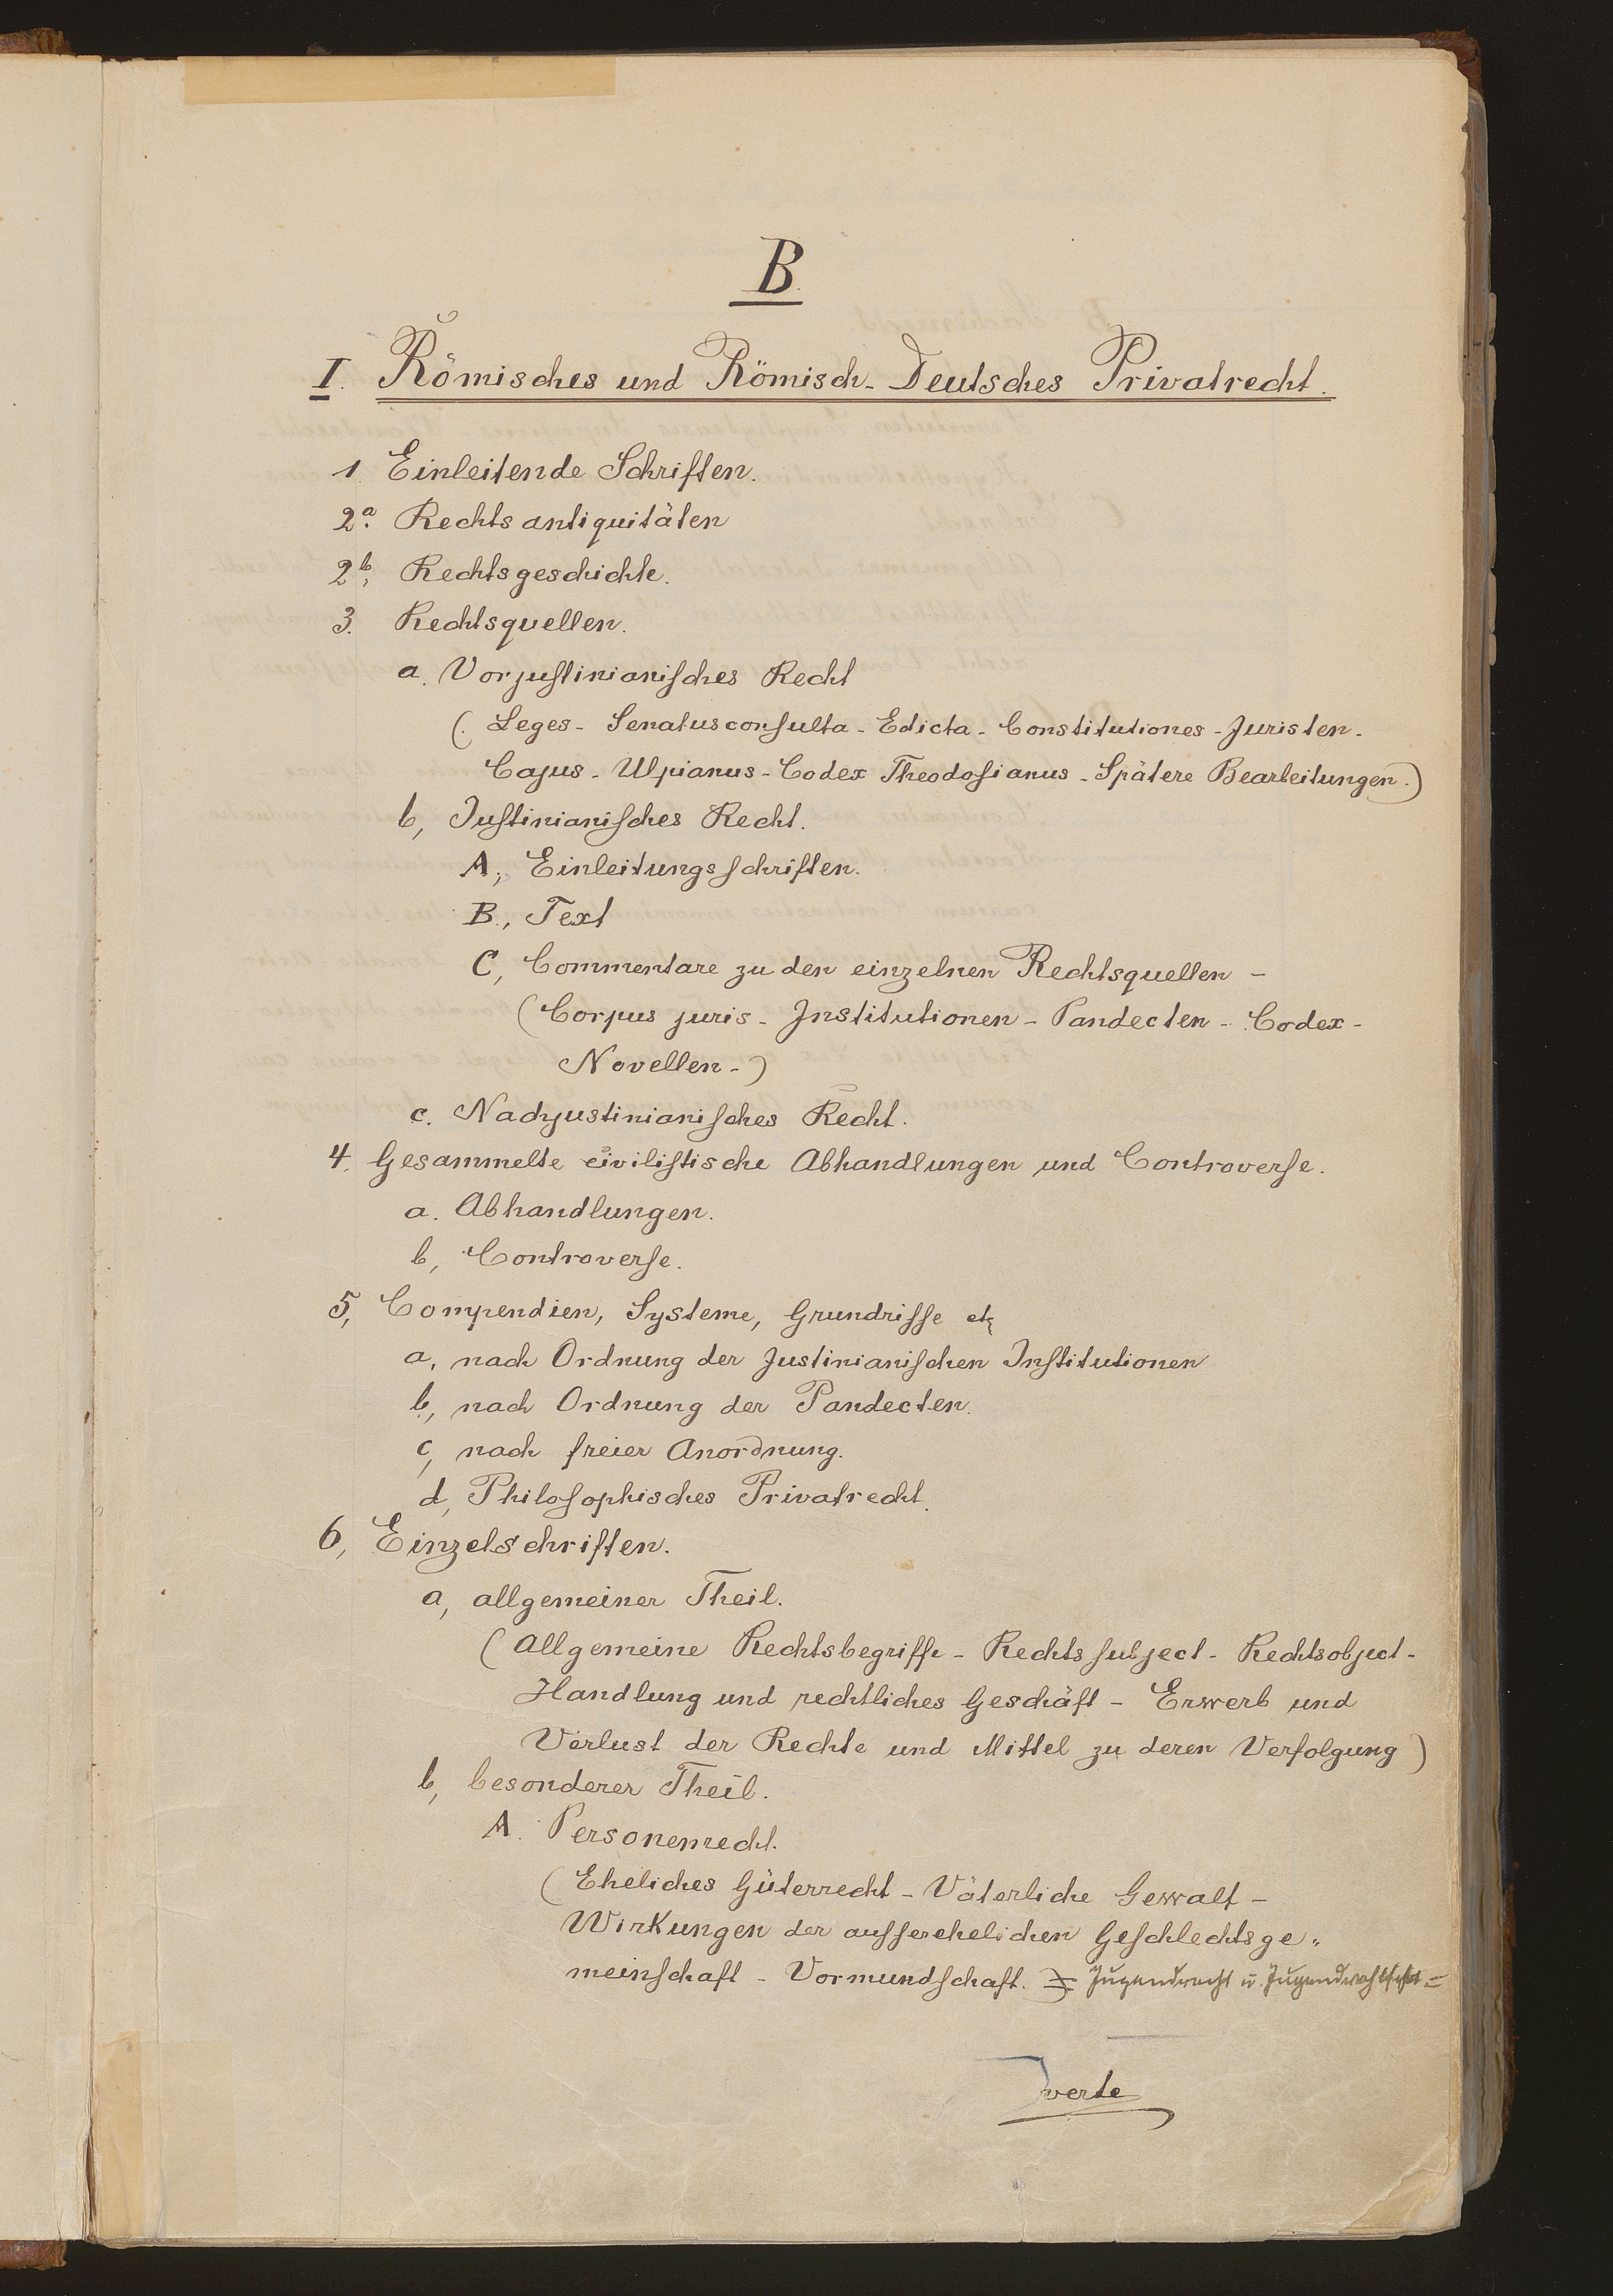 B.
I. Römisches und Römisch-Deutsches Privatrecht.
1. Einleitende Schriften.
2a. Rechtsantiquitäten
2b, Rechtsgeschichte.
3. Rechtsquellen.
a. Vorjustinianisches Recht
(. Leges - Senatusconsulta - Edicta - Constitutiones - Juristen -
Cajus - Ulpianus - Codex Theodosianus - Spätere Bearbeitungen.)
b, Justinianisches Recht.
A, Einleitungsschriften.
B., Text
C, Commentare zu den einzelnen Rechtsquellen -
(Corpus juris - Institutionen - Pandecten - Codex -
Novellen -)
c. Nachjustinianisches Recht.
4. Gesammelte civilistische Abhandlungen und Controverse.
a. Abhandlungen.
b, Controverse.
5, Compendien, Systeme, Grundrisse etc
a, nach Ordnung der Justinianischen Institutionen
b, nach Ordnung der Pandecten.
c, nach freier Anordnung.
d, Philosophisches Privatrecht.
6, Einzelschriften.
a, allgemeiner Theil.
(Allgemeine Rechtsbegriffe - Rechtssubject - Rechtsobject -
Handlung und rechtliches Geschäft - Erwerb und
Verlust der Rechte und Mittel zu deren Verfolgung)
b, besonderer Theil.
A. Personenrecht.
(Eheliches Güterrecht - Väterliche Gewalt -
Wirkungen der aussereheligen Geschlechtsge„
meinschaft - Vormundschaft. = Jugendrecht u. =
verte